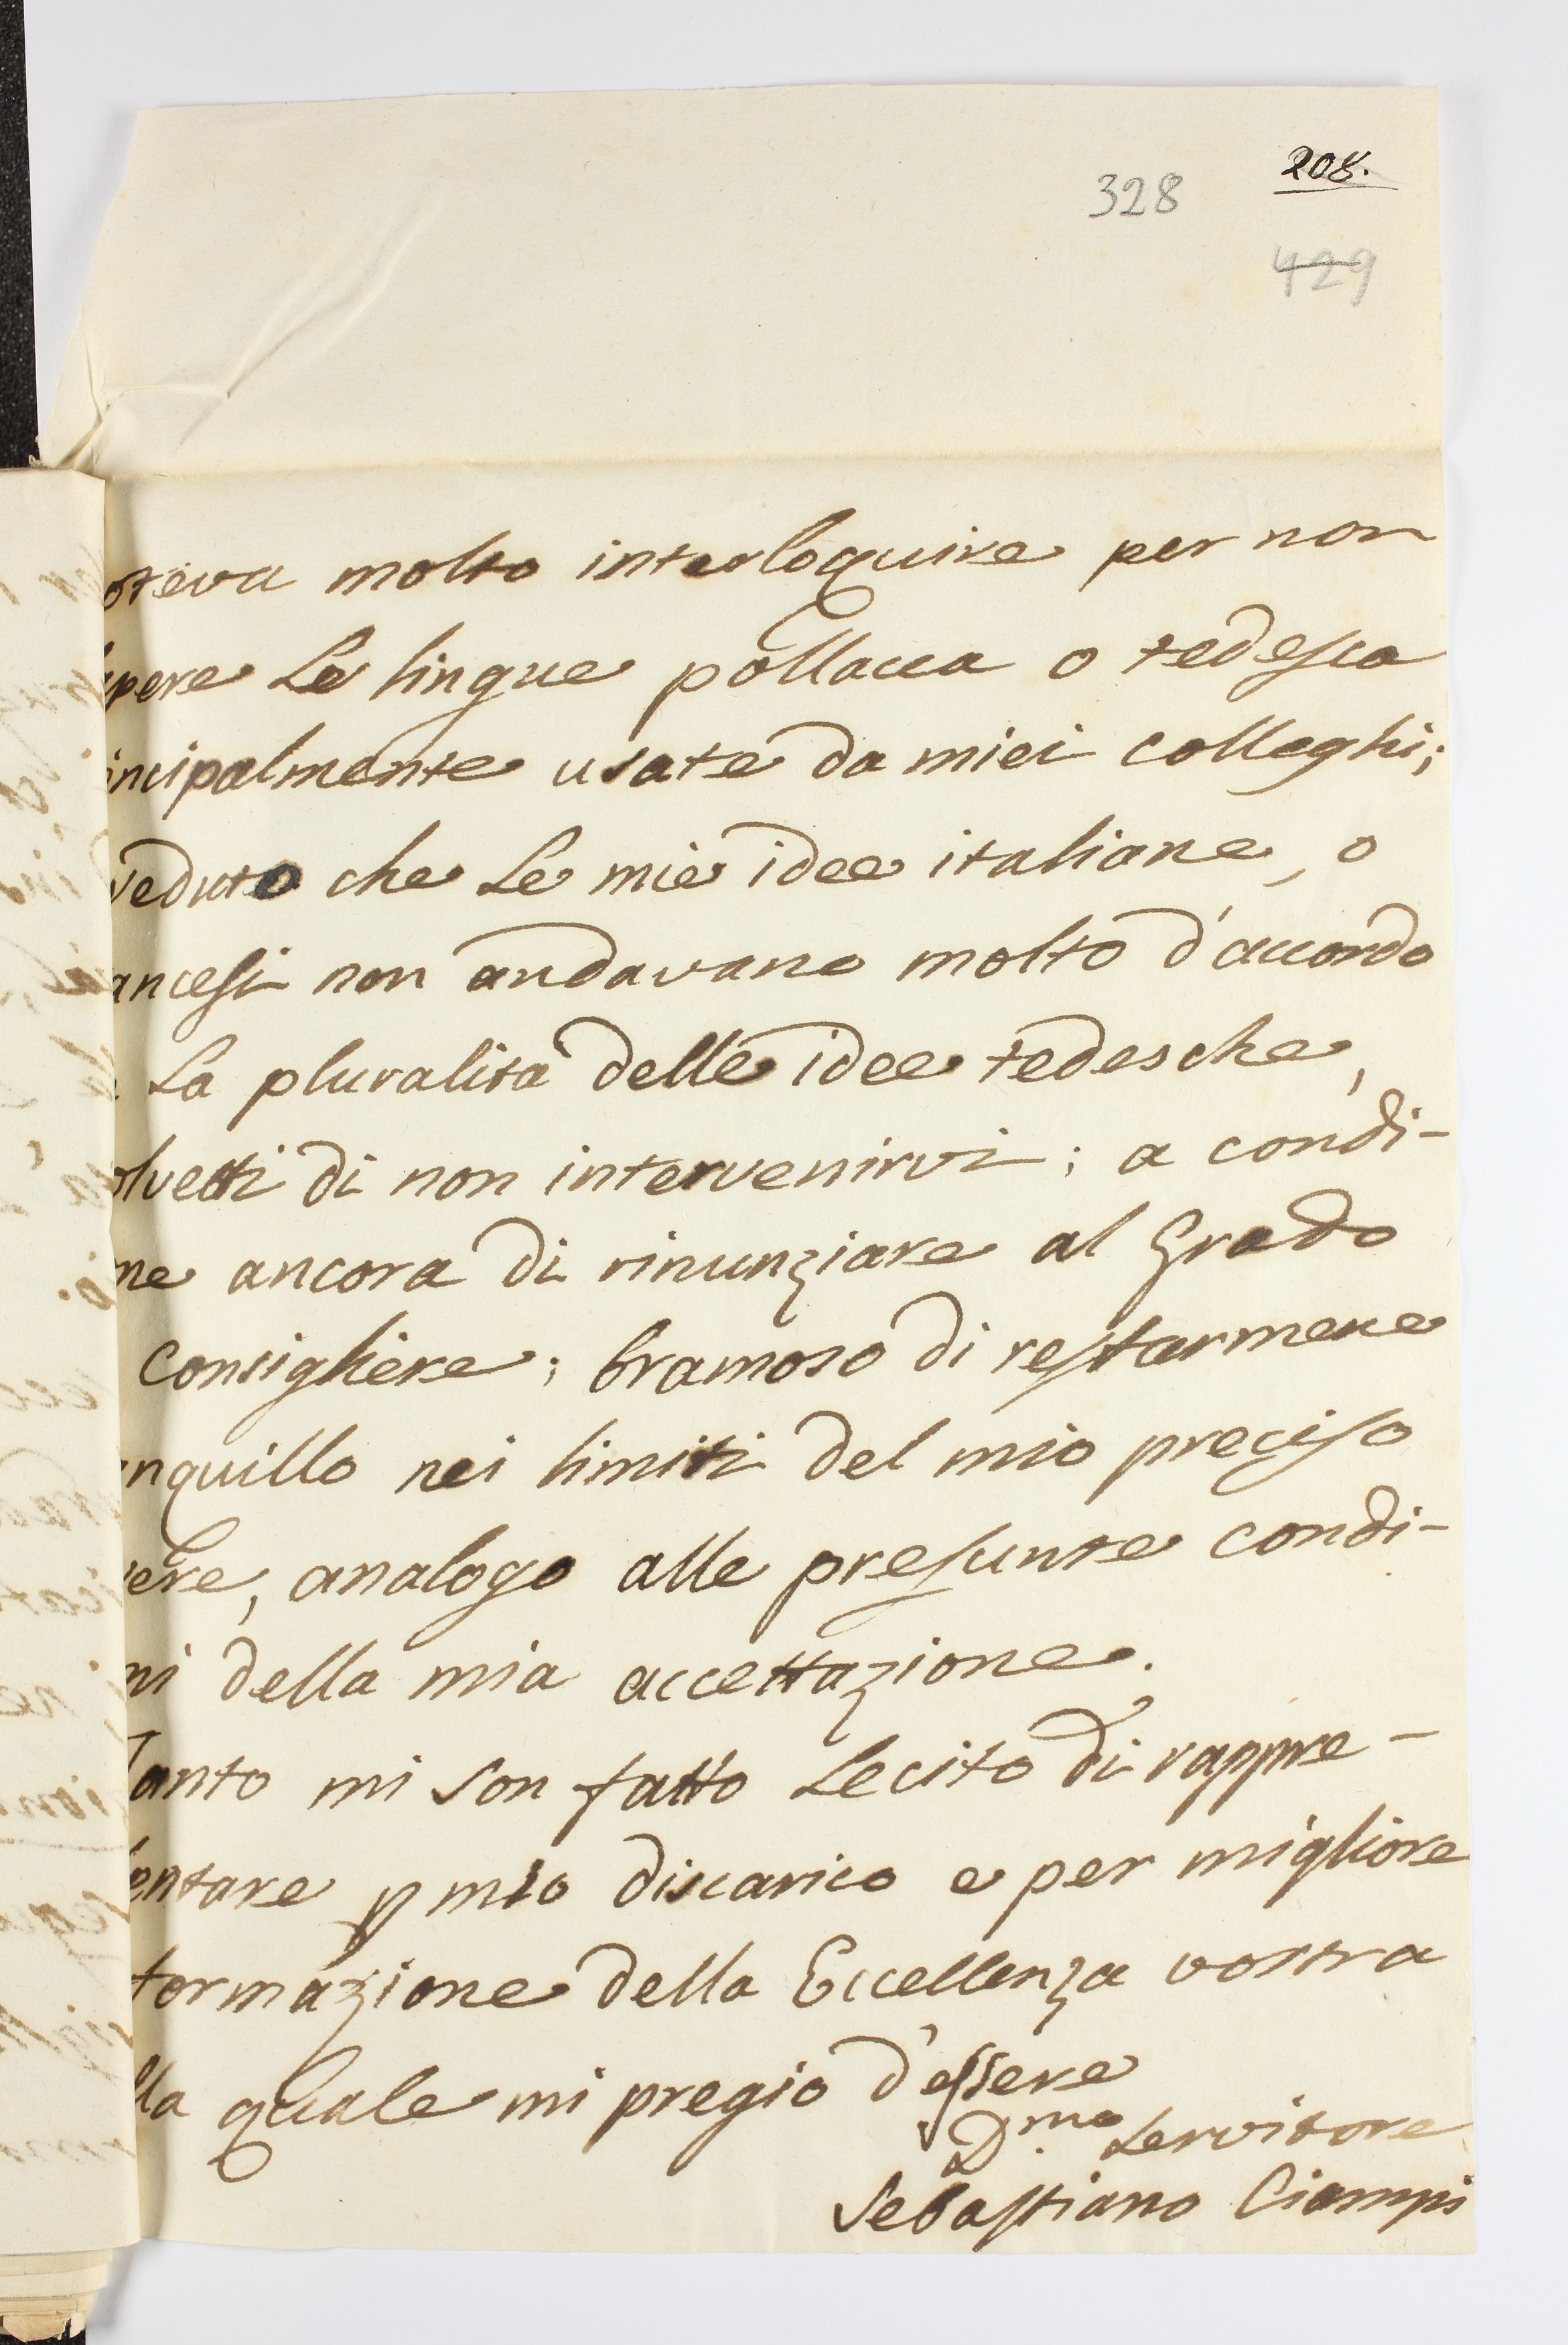 208.
328
429
oteva molto interloquire per non
pere Le lingue pollacca o tedesca
incipalmente usate da miei colleghi;
veduto che Le mie idee italiane, o
ancesi non andavano molto d'accordo
La pluralità delle idee tedesche,
olvetti di non intervenirvi; a condi-
ne ancora di rinunziare al Grado
Consigliere; bramoso di restarmene
nquillo nei limiti del mio preciso
vere, analogo alle presunte condi-
ni della mia accettazione.
Tanto mi son fatto Lecito di rappre-
entare p mio discarico e per migliore
formazione della Eccellenza vostra
lla quale mi pregio d'essere
D.mo Servitore
Sebastiano Ciampi